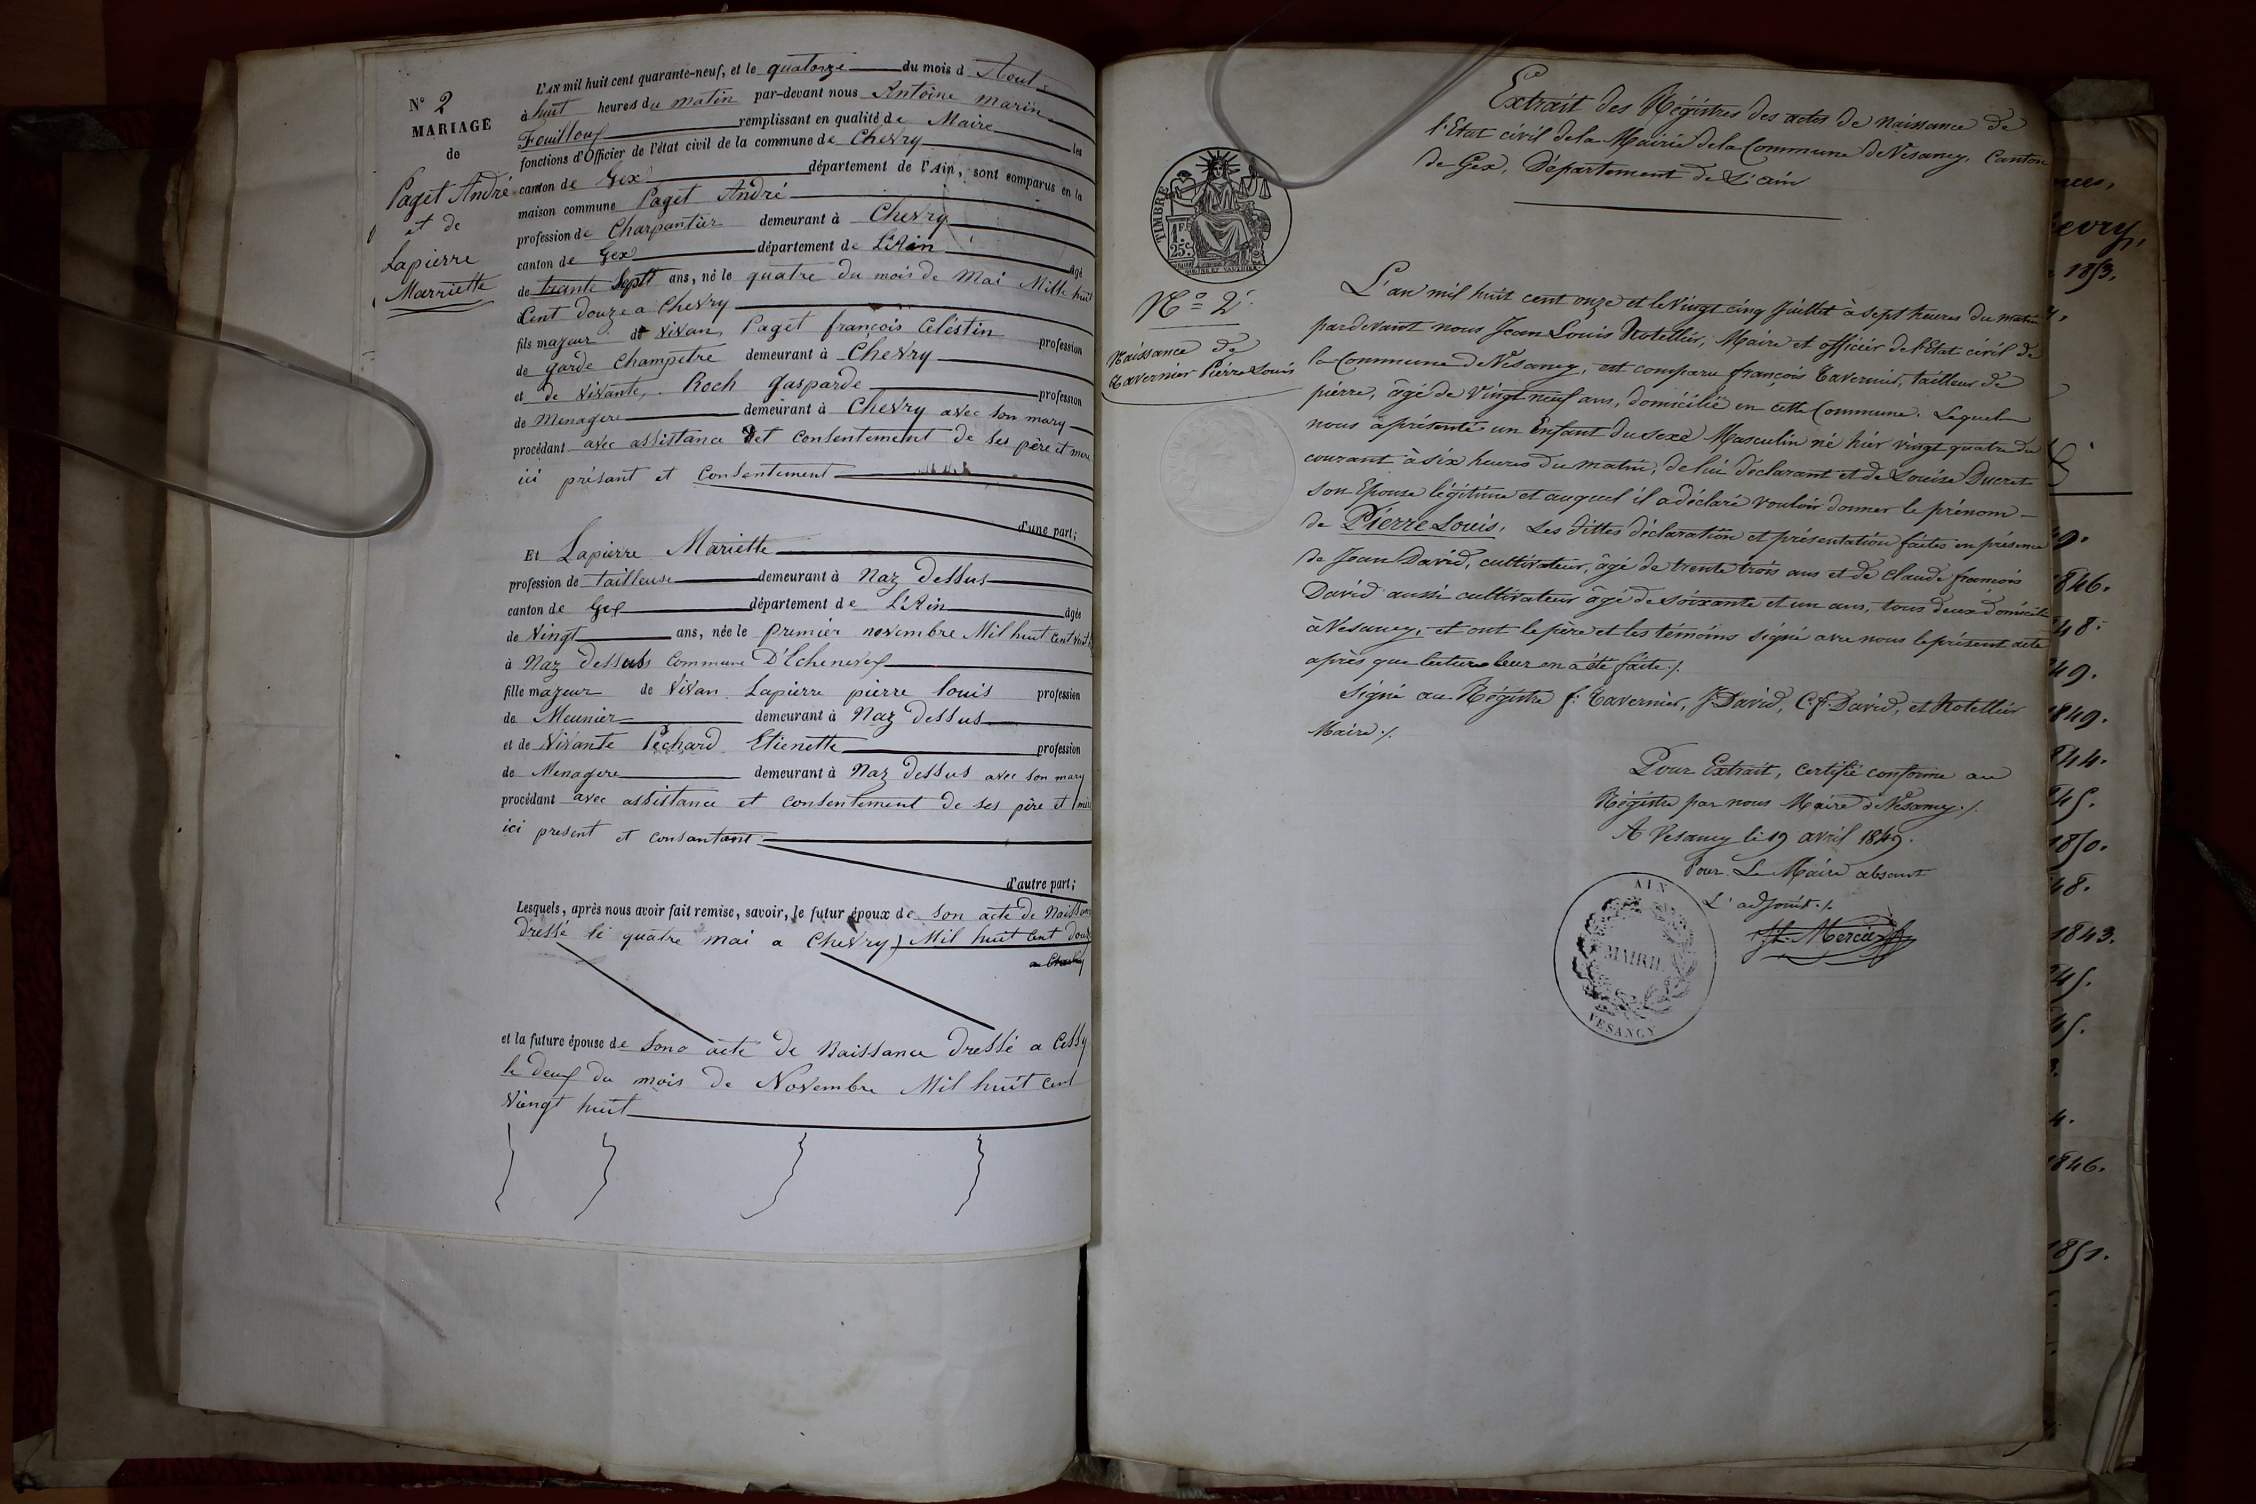 N° 2
MARIAGE
de
Paget André
et de
Lapierre
Marriette
L'AN mil huit cent quarante-neuf, et le quatorze du mois d Aout
à huit heures du matin par-devant nous Antoine marin
Fouilloux remplissant en qualité de Maire les
fonctions d'Officier de l'état civil de la commune de Chevry
canton de Gex département de l'Ain, sont comparus en la
maison commune Paget André
profession de Charpantier demeurant à Chevry
canton de Gex département de L'Ain âgé
de trante sept ans, né le quatre du mois de Mai Mille huit
Cent douze a Chevry
fils majeur de vivan, Paget françois Céléstin profession
de garde Champetre demeurant à Chevry
et de vivante, Roch gasparde profession
de Menagere demeurant à Chevry avec son mary
procédant avec assistance et consentement de ses père et mere
ici présant et Consentement
d'une part;
Et Lapierre Mariette
profession de tailleuse demeurant à Naz dessus
canton de Gex département de L'Ain agée
de vingt ans, née le premier novembre Mil huit Cent
à Naz dessus Commune D'Echenevex
fille majeur de vivan Lapierre pierre louis profession
de Meunier demeurant à Naz dessus
et de vivante Péchard Etienette profession
de Menagere demeurant à Naz dessus avec son mary
procédant avec assistance et consentement de ses père et mère
ici present et consantant
d'autre part;
Lesquels, après nous avoir fait remise, savoir, le futur époux de son acte de Naissan
dressé le quatre mai a Chevry Mil huit Cent douze
et la future épouse de sono acte de Naissance dressé a Cessy
le deux du mois de Novembre Mil huit Cent
vingt huit
Extrait des Régistres des actes de naissance de
l'Etat civil de la Mairie de la Commune de Vesancy, Canton
de Gex, Département de L'ain
TIMBRE
1F.
25c.
N° 2.
Naissance de
Tavernier Pierre Louis
L'an mil huit cent onze et le vingt cinq Juillet à sept heures du matin
pardevant nous Jean Louis Notellier, Maire et officier de l'Etat civil de
la Commune de Vesancy, est comparu françois Tavernier, tailleur de
pierre, âgé de vingt neuf ans, domicilié en cette Commune. Lequel
nous à présenté un Enfant du sexe Masculin né hier vingt quatre du
courant à six heures du matin, de lui déclarant et de Louise Ducret
son Epouse légitime et auquel il a déclaré vouloir donner le prénom
de Pierre Louis. Les dittes déclaration et présentation faites en présence
de Jean David, cultivateur, âgé de trente trois ans et de claude françois
David aussi cultivateur âgé de soixante et un ans, tous deux domicilié
à Vesancy, et ont le père et les témoins signé avec nous le présent acte
après que lecture leur en a été faite./.
Signé au Régistre f. Tavernier, J. David, C. f. David, et Notellier
Maire./.
Pour Extrait, certifié conforme au
Régistre par nous Maire de Vesancy./.
A Vesancy le 19 avril 1849.
Pour Le Maire absent
L'adjoint./.
Mercier
AIN
MAIRIE
VESANCY
evry,
1853.
49.
846.
48.
49.
1849.
844.
45.
1850.
48.
1843.
45.
45.
4.
846.
1851.